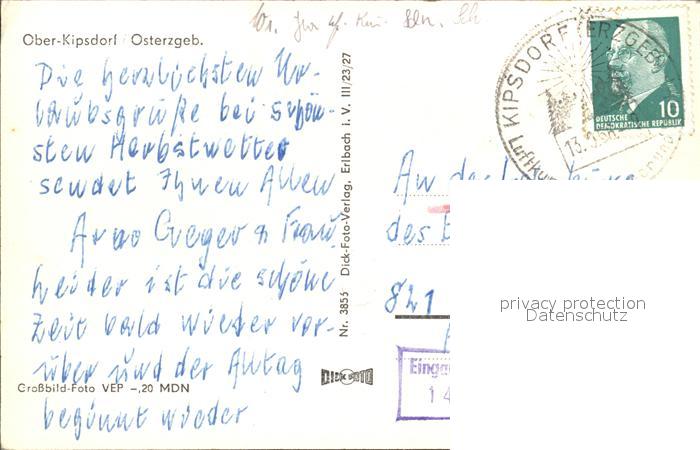 Ober-Kipsdorf Osterzgeb.
Die herzlichsten Ur-
laubsgrüße bei schön-
sten Herbstwetter
sendet Ihnen Allen
Arno Geger u Frau
heider ist die schöne
Zeit bald wieder vor-
über und der Alltag
beginnt wieder
Großbild-Foto VEP -,20 MDN
Nr. 3855 Dick-Foto-Verlag, Erlbach i. V. III/23/27
DICK FOTO
KIPSDORF ERZGEB
Luftku
13.
10
DEUTSCHE
DEMOKRATISCHE REPUBLIK
An
des
821
Einga
14
privacy protection
Datenschutz